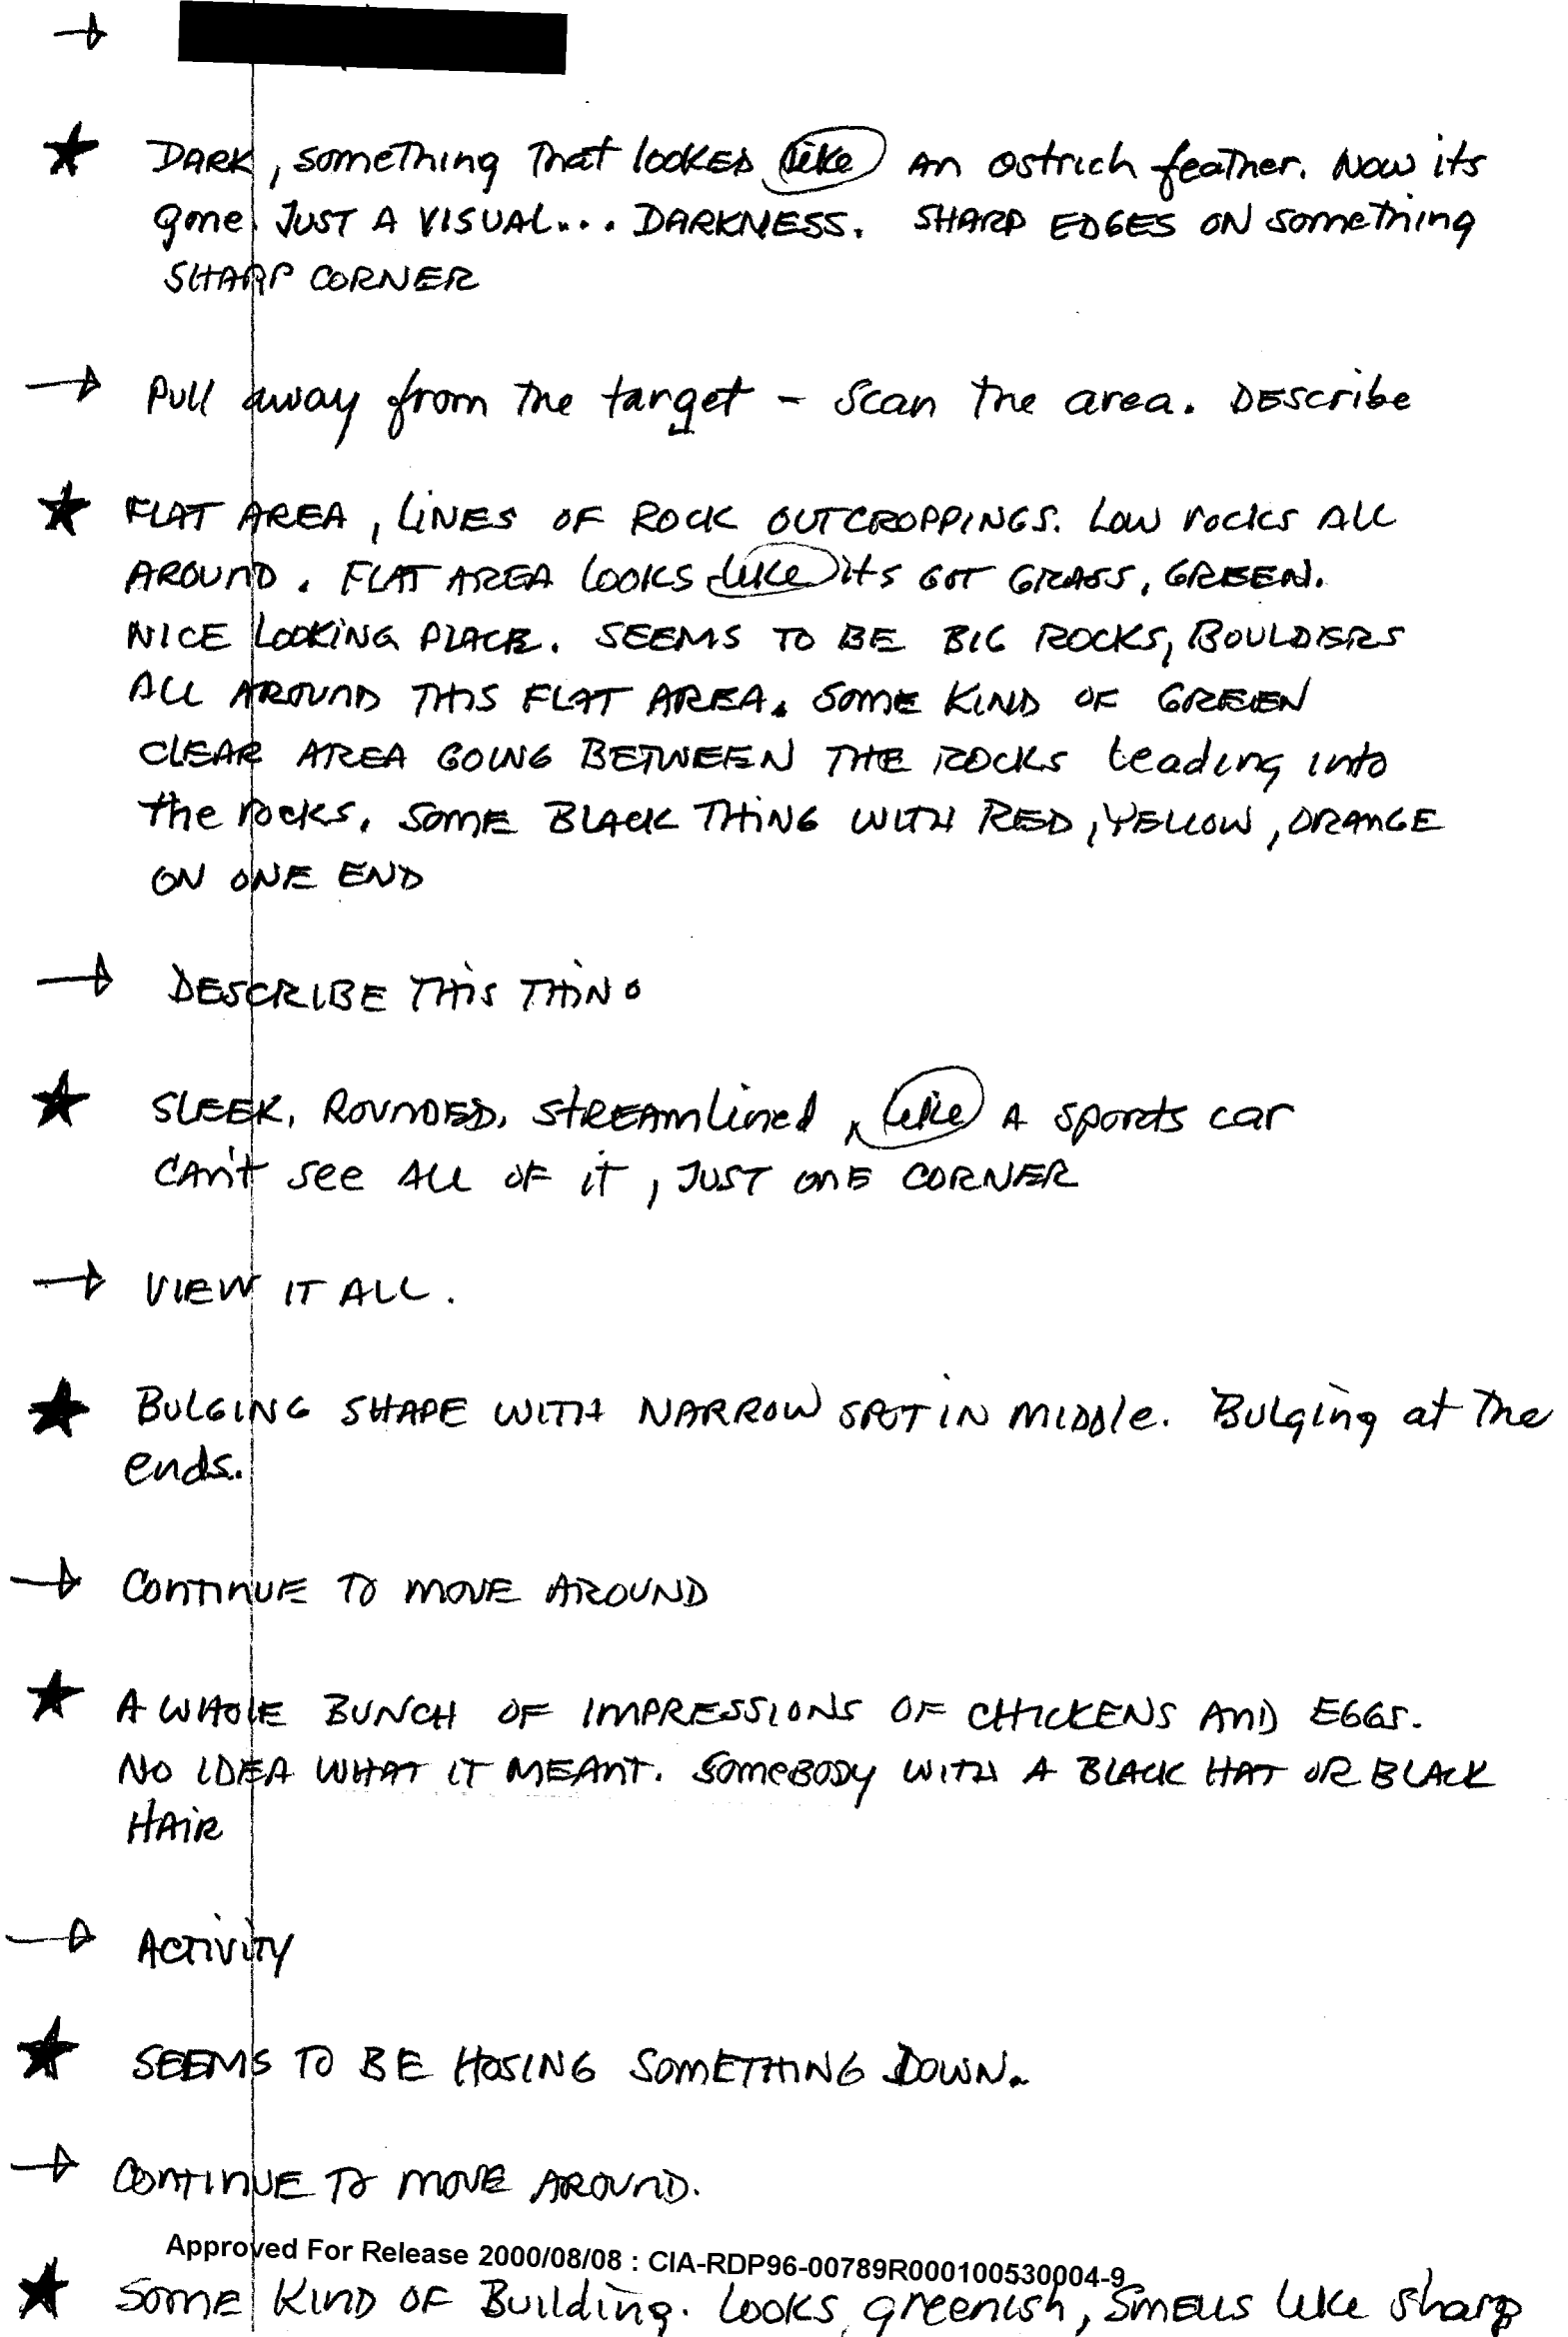 DARK, something that looked like an ostrich feather. Now its
gone. JUST A VISUAL... DARKNESS. SHARP EDGES ON something
SHARP CORNER
Pull away from the target - Scan the area. DEscribe
FLAT AREA, LINES OF ROCK OUTCROPPINGS. Low rocks ALL
AROUND. FLAT AREA looks like its GOT GRASS, GREEN.
NICE LOOKING PLACE. SEEMS TO BE BIG ROCKS, BOULDERS
ALL AROUND THIS FLAT AREA. SOME KIND OF GREEN
CLEAR AREA GOING BETWEEN THE ROCKS leading into
the rocks. SOME BLACK THING WITH RED, YELLOW, ORANGE
ON ONE END
DESCRIBE THIS THING
SLEEK, ROUNDED, STREAMlined, like A sports car
CAN'T see ALL OF it, JUST ONE CORNER
VIEW IT ALL.
BULGING SHAPE WITH NARROW SPOT IN MIDDle. Bulging at The
ends.
CONTINUE TO MOVE AROUND
A WHOLE BUNCH OF IMPRESSIONS OF CHICKENS AND EGGS.
NO IDEA WHAT IT MEANT. SOMEBODY WITH A BLACK HAT OR BLACK
HAIR
ACTIVITY
SEEMS TO BE HOSING SOMETHING DOWN.
CONTINUE TO MOVE AROUND.
Approved For Release 2000/08/08 : CIA-RDP96-00789R000100530004-9
Some KIND OF Building. Looks greenish, SMELLS like sharp